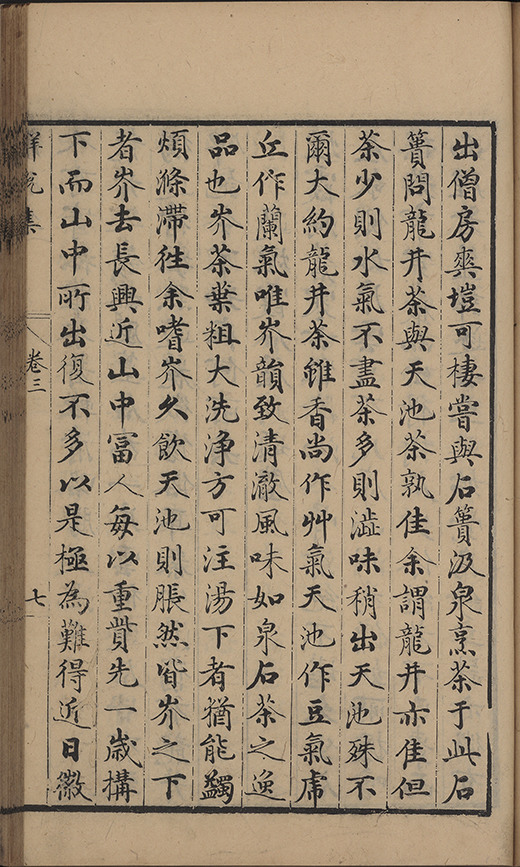 出僧房爽塏可棲嘗與石簣汲泉烹茶于此石
簣問龍井茶與天池茶孰佳余謂龍井亦佳但
茶少則水氣不盡茶多則澁味稍出天池殊不
爾大約龍井茶雖香尚作艸氣天池作豆氣虎
丘作蘭氣唯岕韻致清澈風味如泉石茶之逸
品也岕茶葉粗大洗浄方可注湯下者猶能蠲
煩滌滯徃余嗜岕久飲天池則脹然皆岕之下
者岕去長興近山中冨人每以重貲先一歲搆
下而山中所出復不多以是極為難得近日徽
卷三
七